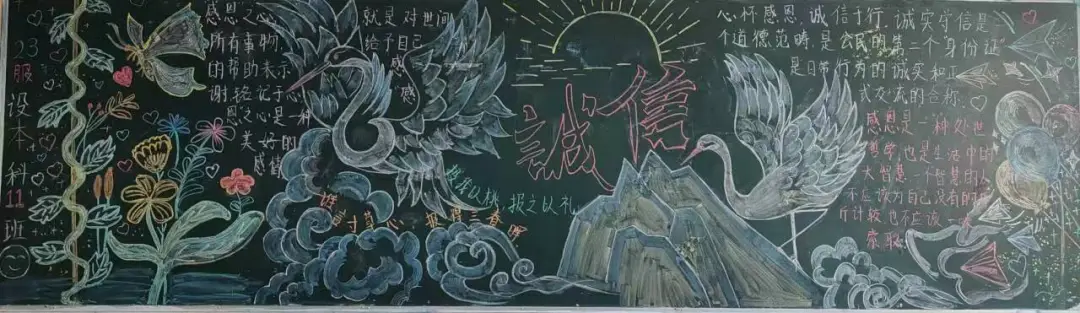 23服设本科11班
感恩之心
就是对世间
所有事物
给予自己
的帮助表示
感
谢
感
恩之心是一种
美好的
感情
誠信
寸草心
报得三春晖
报之以礼
心怀感恩,诚信于行,诚实守信是
个道德范畴,是公民的第二个身份证
是日常行为的诚实和正
式交流的合称.
感恩是一种处世
哲学,也是生活中的
大智慧.一个智慧的人
不应该为自己没有的
斤计较,也不应该一
索取